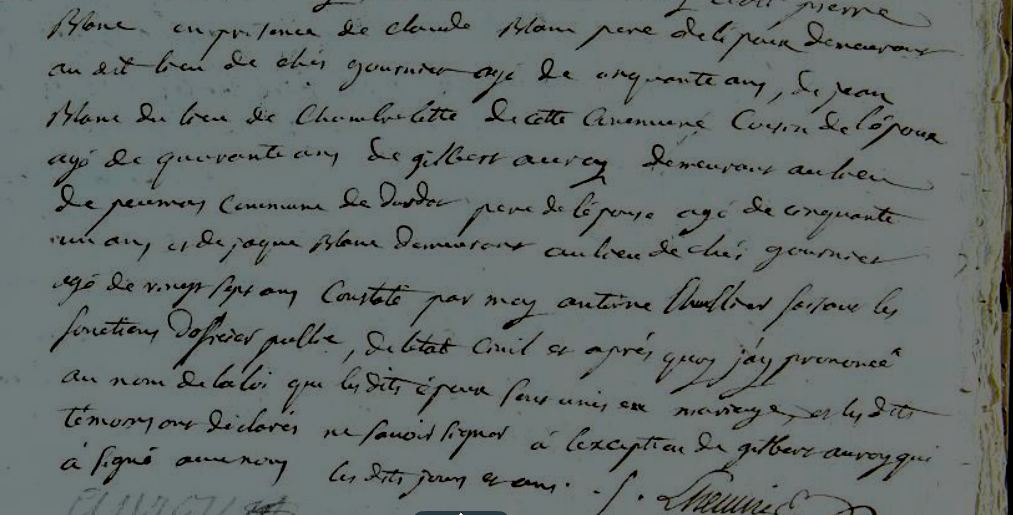 pierre
Blanc en présence de claude Blanc pere de l'époux demeurant
au dit lieu de chés gournier agé de cinquante ans, de jean
Blanc du lieu de Chambelette de cette Commune Cousin de l'époux
agé de quarante ans de gilbert auroy demeurant au lieu
de commune de durdat pere de l'épouse agé de cinquante
un ans et de jaque Blanc demeurant au lieu de chés gournier
agé de vingt sept ans Constaté par moy antoine faisant les
fonctions d'officier public, de létat Civil et aprés quoy j'ay prononcé
au nom de la loi que les dits époux sont unis en mariage, et les dits
témoins ont déclarés ne savoir signer à l'exception de gilbert auroy qui
à signé avec nous les dits jours et ans.